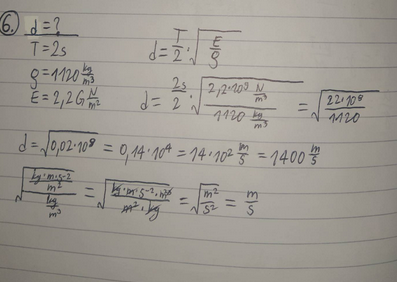 6. d = ?
T = 2s
ρ = 1120 kg/m³
E = 2,2 G N/m²
d = T/2 · √(E/ρ)
d = 2s/2 · √(2,2·10⁹ N/m³ / 1120 kg/m³) = √(22·10⁸ / 1120)
d = √(0,02·10⁸) = 0,14·10⁴ = 14·10² m/s = 1400 m/s
√((kg·m·s⁻²/m²) / (kg/m³)) = √(kg·m·s⁻²·m³ / m²·kg) = √(m²/s²) = m/s